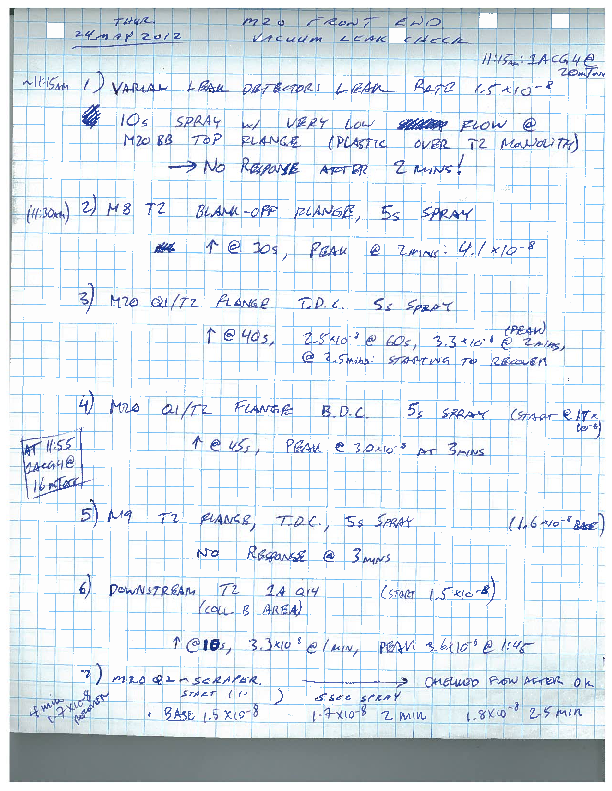 THUR. M20 FRONT END
24 MAY 2012 VACUUM LEAK CHECK
11:15am: 1ACG4@
20mTorr
~11:15AM 1) VARIAN LEAK DETECTOR: LEAK RATE 1.5x10⁻⁸
10s SPRAY w/ VERY LOW FLOW @
M20 BB TOP FLANGE (PLASTIC OVER T2 MONOLITH)
→ NO RESPONSE AFTER 2 MINS!
(11:30am) 2) M8 T2 BLANK-OFF FLANGE, 5s SPRAY
↑ @ 30s, PEAK @ 2MINS: 4.1x10⁻⁸
3) M20 Q1/T2 FLANGE T.D.C. 5s SPRAY
(PEAK)
↑ @ 40s, 2.5x10⁻⁸ @ 60s, 3.3x10⁻⁸ @ 2MINS,
@ 2.5mins: STARTING TO RECOVER
4) M20 Q1/T2 FLANGE B.D.C. 5s SPRAY (START @ 1.7x
10⁻⁸)
↑ @ 45s, PEAK @ 3.0x10⁻⁸ AT 3MINS
AT 11:55
1ACG4@
16mTorr
5) M9 T2 FLANGE, T.D.C., 5s SPRAY (1.6x10⁻⁸ BASE)
NO RESPONSE @ 3MINS
6) DOWNSTREAM T2 1A Q14 (START 1.5x10⁻⁸)
(COLL B AREA)
↑ @10s, 3.3x10⁻⁸ @ 1MIN, PEAK: 3.6x10⁻⁸ @ 1:45
7) M20 Q2 - SCRAPER. → CHECKED FLOW AFTER OK
START 5 SEC SPRAY
BASE 1.5x10⁻⁸ 1.7x10⁻⁸ 2 MIN 1.8x10⁻⁸ 2.5 MIN
4 min
1.7x10⁻⁸